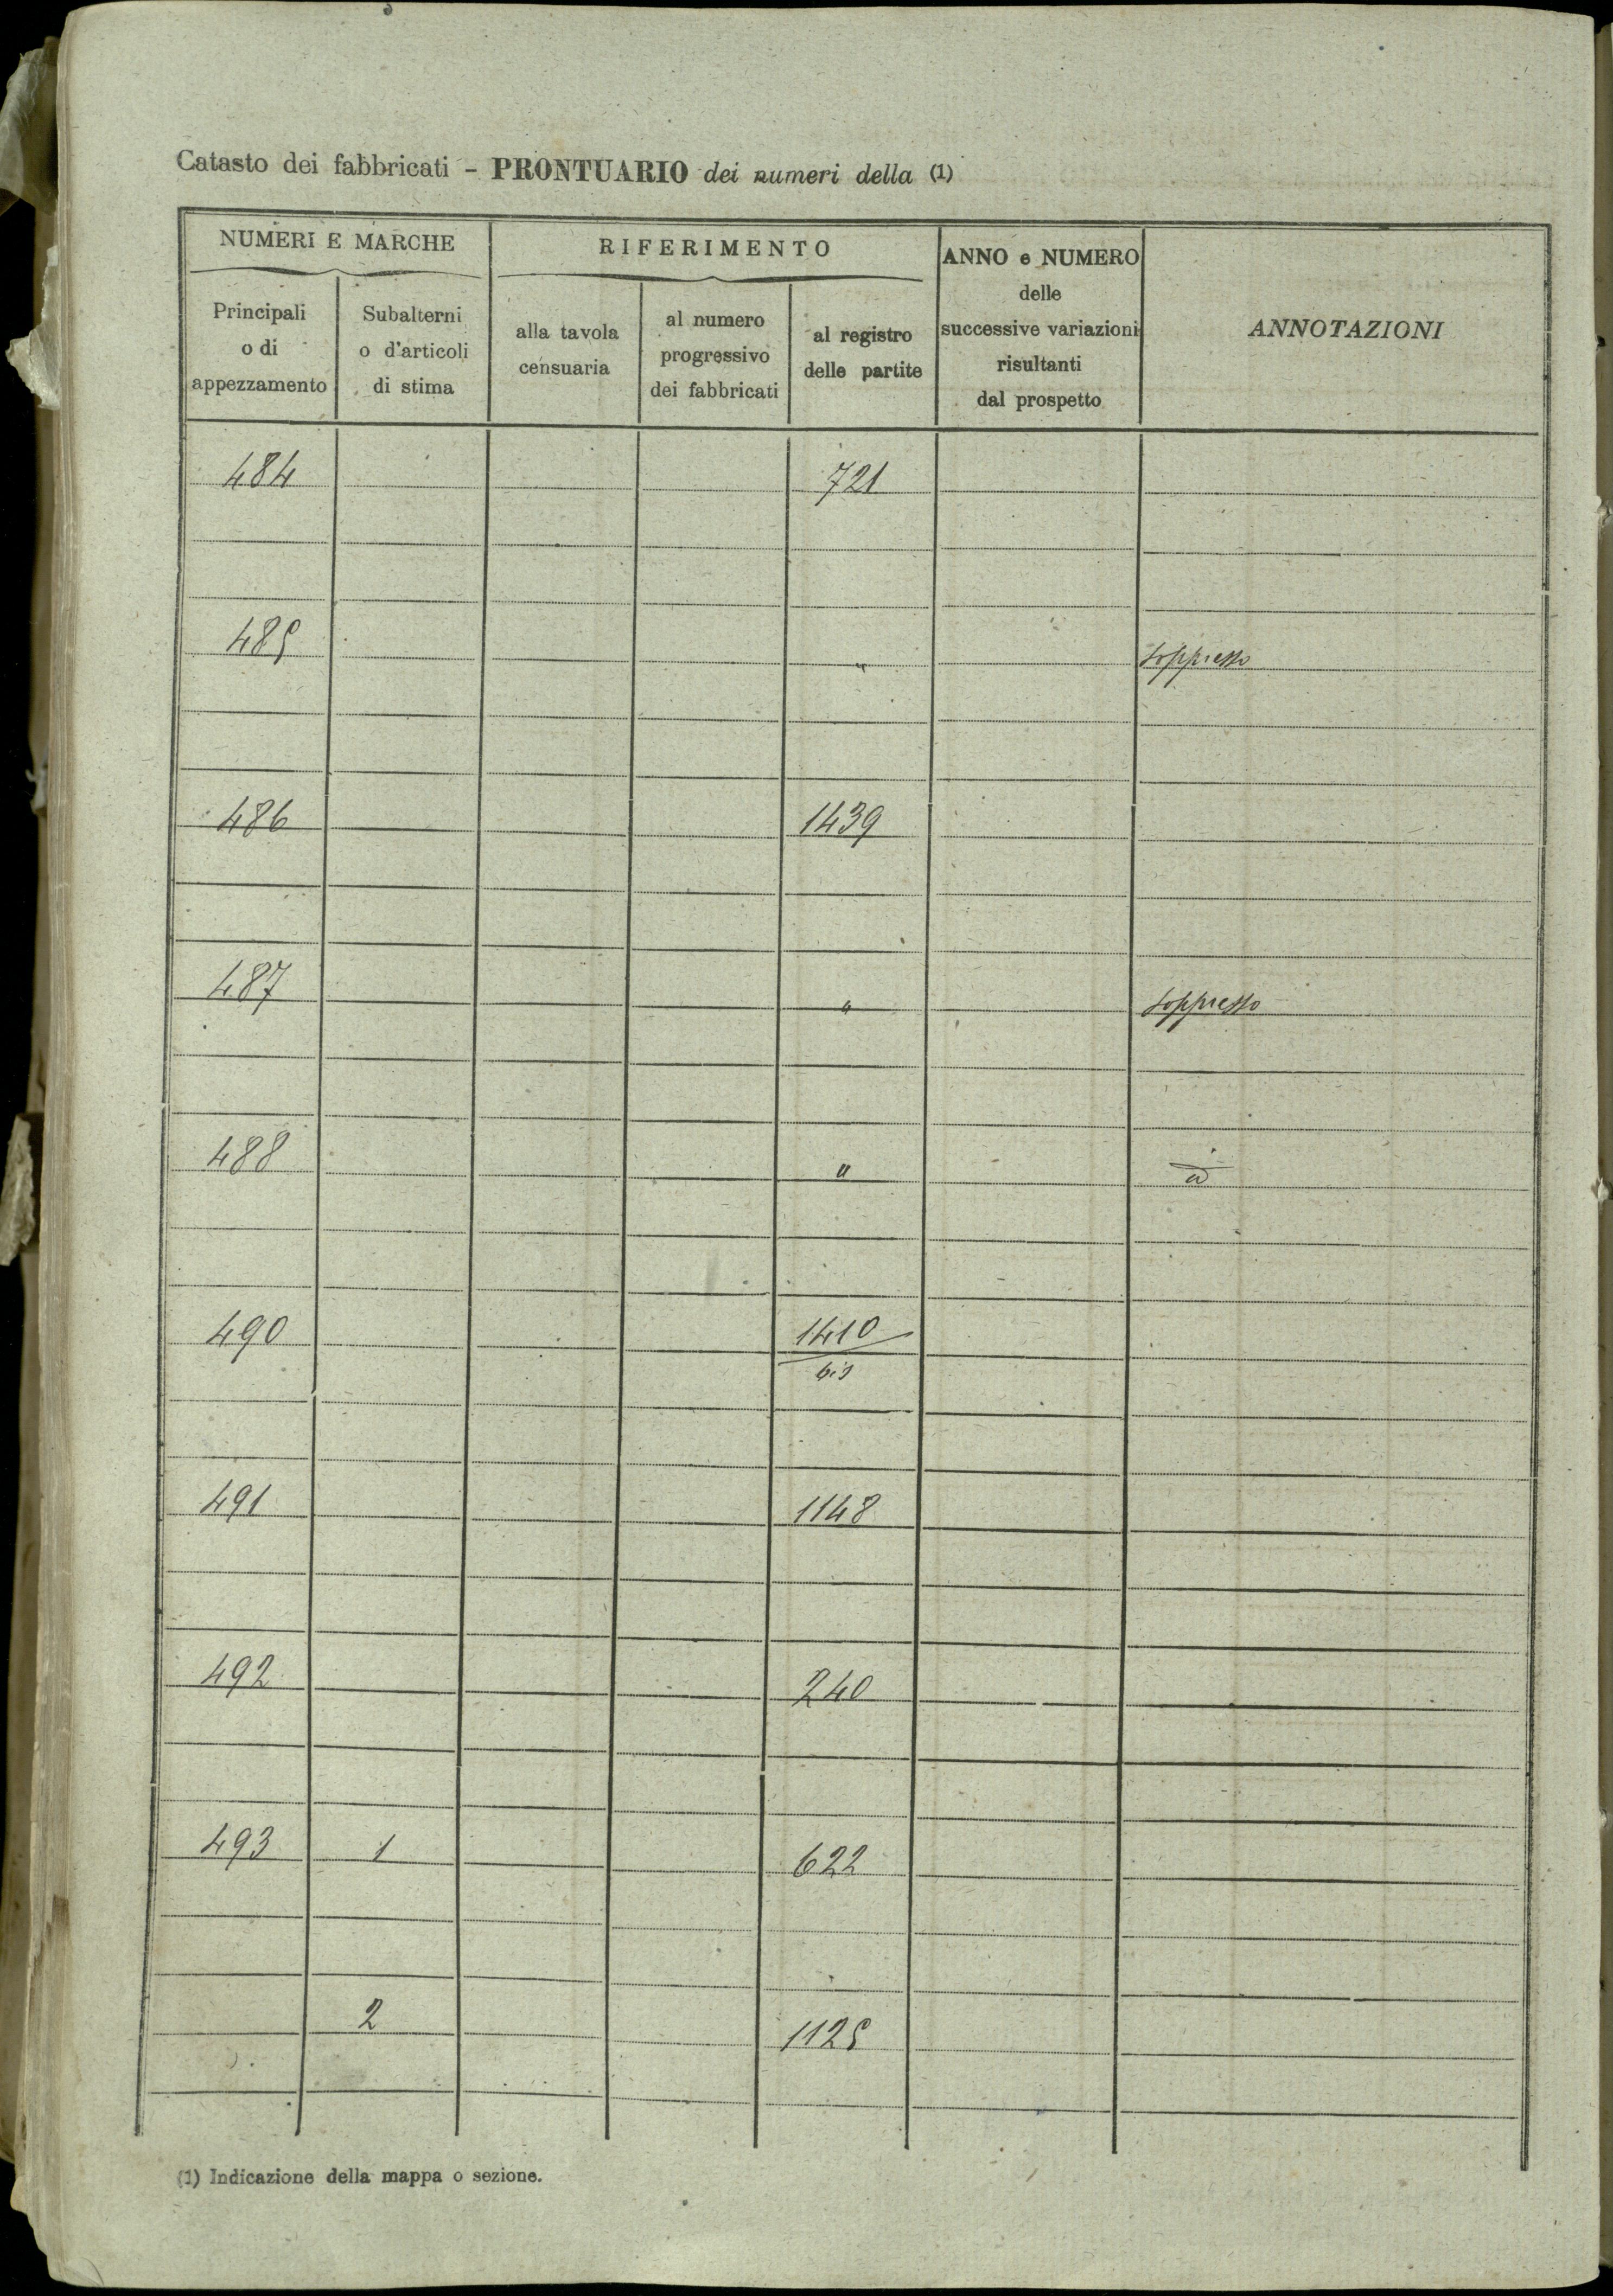 Catasto dei fabbricati - PRONTUARIO dei numeri della (1)
NUMERI E MARCHE
RIFERIMENTO
ANNO e NUMERO
delle
successive variazioni
risultanti
dal prospetto
ANNOTAZIONI
Principali
o di
appezzamento
Subalterni
o d'articoli
di stima
alla tavola
censuaria
al numero
progressivo
dei fabbricati
al registro
delle partite
484 721
485 " soppresso
486 1439
487 " soppresso
488 " id
490 1410
bis
491 1148
492 240
493 1 622
2 1125
(1) Indicazione della mappa o sezione.